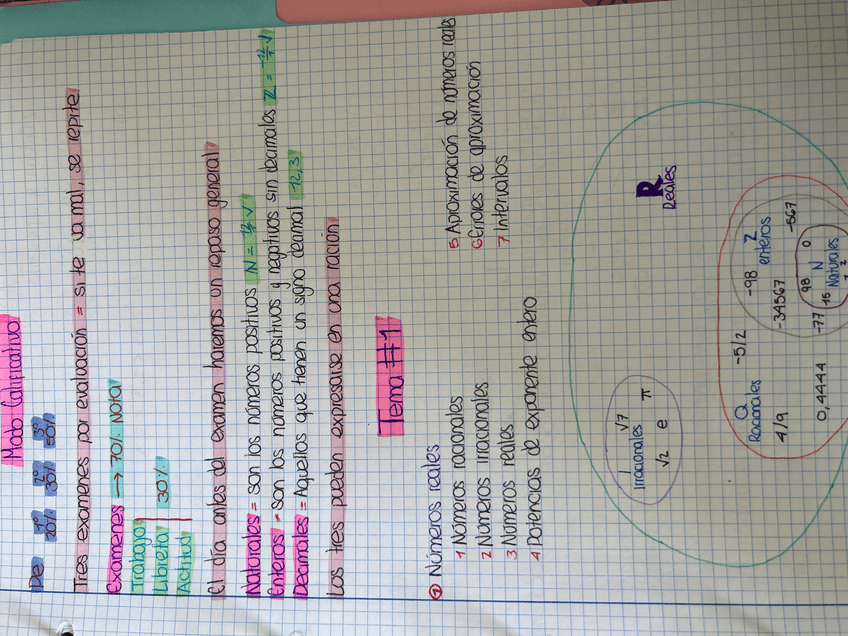 Modo Calificativo
De 1º 2º 3º
20% 30% 50%
Tres examenes por evaluación = si te va mal, se repite
Examenes → 70% Nota
Trabajo
Libreta 30%
Actitud
El día antes del examen haremos un repaso general
Naturales = son los números positivos N =
Enteros = son los números positivos y negativos sin decimales Z =
Decimales = Aquellos que tienen un signo decimal 12,3
Los tres pueden expresarse en una ración
Tema #1
1 Números reales
1 Números racionales
2 Números irracionales
3 Números reales
4 Potencias de exponente entero
5 Aproximación de números reales
6 Errores de aproximación
7 Intervalos
R
Reales
I √7
Irracionales
√2 e π
Q
Racionales
-5/2
4/9
0,4444
-98 Z
enteros
-34567
-567
-77
98 0
16 N
Naturales
1 2